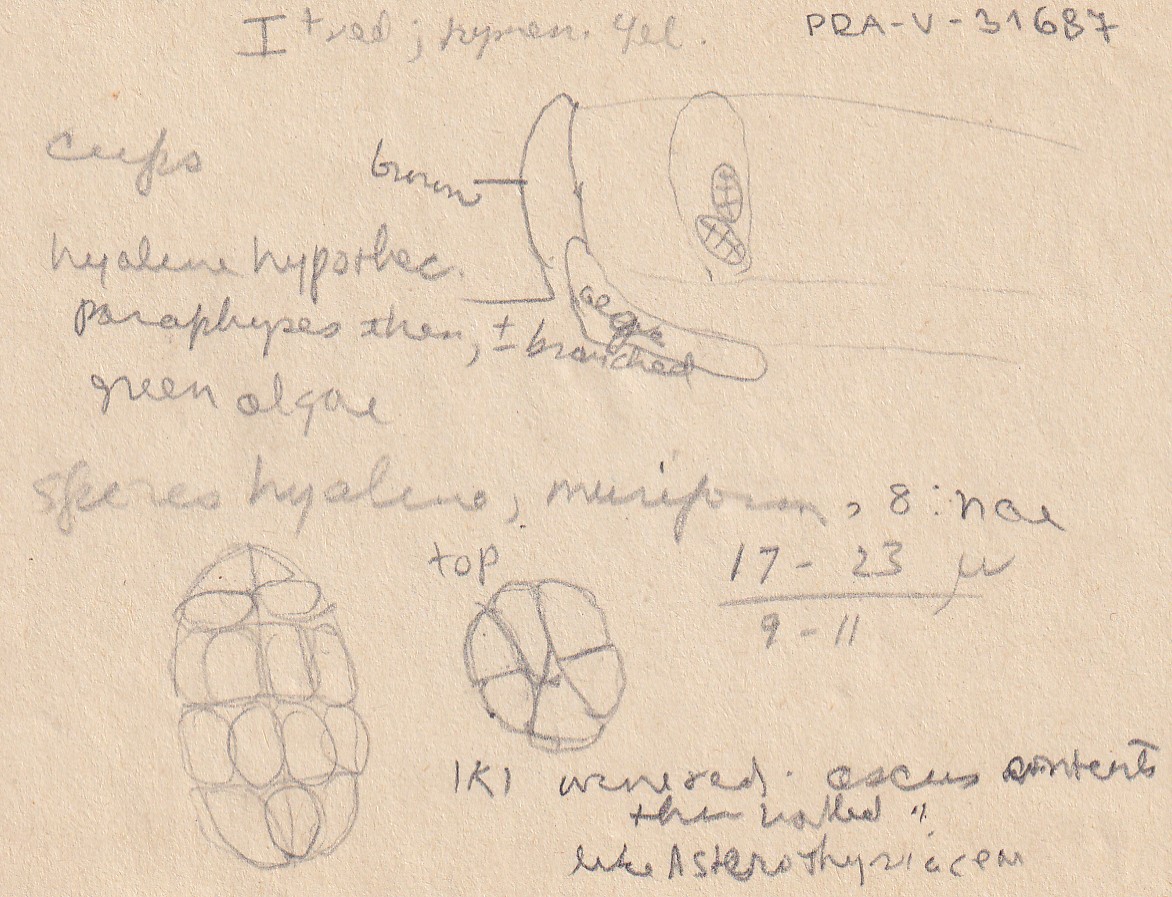 I + red; hymen. yel.
PRA-V-31687
cups
brown
hyaline hypothec.
algae
Paraphyses thin, ± branched
green algae
spores hyaline, muriform, 8:nae
top
17 - 23 µ
9 - 11
IKI wine red. ascus contents
thin walled
like Asterothyriaceae